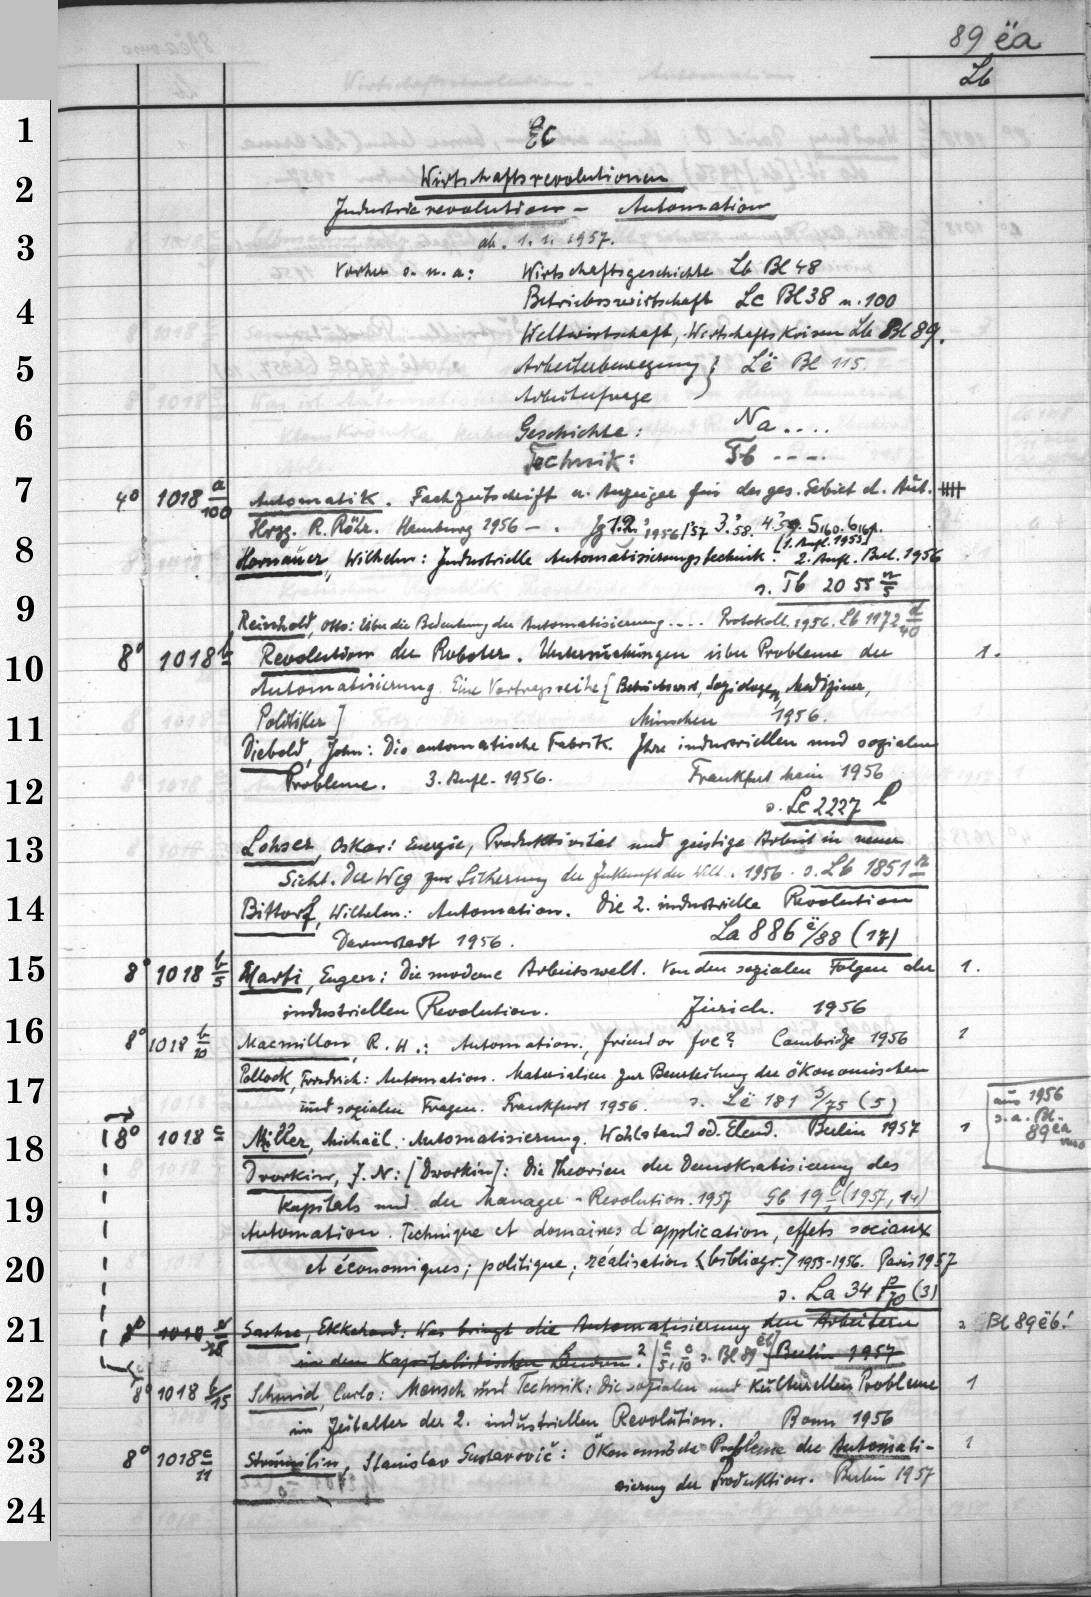 89 ëa
Lb
1
ËC
2
Wirtschaftsrevolutionen
Industrierevolution - Automation
3
ab. 1. 1. 1957.
Vorher s. u. a: Wirtschaftsgeschichte Lb Bl 48
4
Betriebswirtschaft Lc Bl 38 u. 100
Weltwirtschaft, Wirtschaftskrisen Lb Bl 89.
5
Arbeiterbewegung } Lë Bl 115.
Arbeiterfrage
6
Geschichte: Na ....
Technik: Tb ----
7
4° 1018 a/100 Automatik. Fachzeitschrift u. Anzeiger für das ges. Gebiet d. Aut.
Hrsg. R. Röhr. Hamburg 1956 - . Jg 1.2. 1956/57 3. 58. 4. 59. 5,60. 6,61.
8
(1. Aufl. 1955)
Hornauer, Wilhelm: Industrielle Automatisierungstechnik. 2. Aufl. Berl. 1956
s. Tb 20 55 n/5
9
Reinhold, Otto: Über die Bedeutung der Automatisierung .... Protokoll. 1956. Lb 1172 d/40
10
8° 1018 b Revolution der Roboter. Untersuchungen über Probleme der 1.
Automatisierung. Eine Vortragsreihe [Betriebswirt, Soziologen, Mediziner,
11
Politiker] München 1956.
Diebold, John: Die automatische Fabrik. Ihre industriellen und sozialen
12
Probleme. 3. Aufl. 1956. Frankfurt Main 1956
s. Lc 2227 l
13
Lohser, Oskar: Energie, Produktivität und geistige Arbeit in neuer
Sicht. Der Weg zur Sicherung der Zukunft der Welt. 1956. s. Lb 1851 n
14
Bittorf, Wilhelm: Automation. Die 2. industrielle Revolution
Darmstadt 1956. La 886 ë/88 (17)
15
8° 1018 b/5 Marti, Eugen: Die moderne Arbeitswelt. Von den sozialen Folgen der 1.
industriellen Revolution. Zürich. 1956
16
8° 1018 b/10 Macmillan, R. H.: Automation, friend or foe? Cambridge 1956 1
Pollock, Friedrich: Automation. Materialien zur Beurteilung der ökonomischen
17
und sozialen Fragen. Frankfurt 1956. s. Lë 181 s/75 (5)
aus 1956
s. a. Bl.
89 ëa
18
8° 1018 c Miller, Michaël: Automatisierung. Wohlstand od. Elend. Berlin 1957 1
Dvorkin, J. N: [Dworkin]: Die Theorien der Demokratisierung des
19
Kapitals und der Manager-Revolution. 1957 Gb 19 (1957, 14)
Automation. Technique et domaines d'application, effets sociaux
20
et économiques; politique; réalisations (bibliogr.) 1955-1956. Paris 1957
s. La 34 p/70 (3)
21
8° 1018 Sachse, Ekkehard: Was bringt die Automatisierung den Arbeitern Bl 89ëb!
in den kapitalistischen Ländern? s. Bl 89 ëb Berlin 1957
22
8° 1018 b/15 Schmid, Carlo: Mensch und Technik: Die sozialen und kulturellen Probleme 1
im Zeitalter der 2. industriellen Revolution. Bonn 1956
23
8° 1018 c/11 Strumilin, Stanislav Gustavovič: Ökonomische Probleme der Automati- 1
sierung der Produktion. Berlin 1957
24